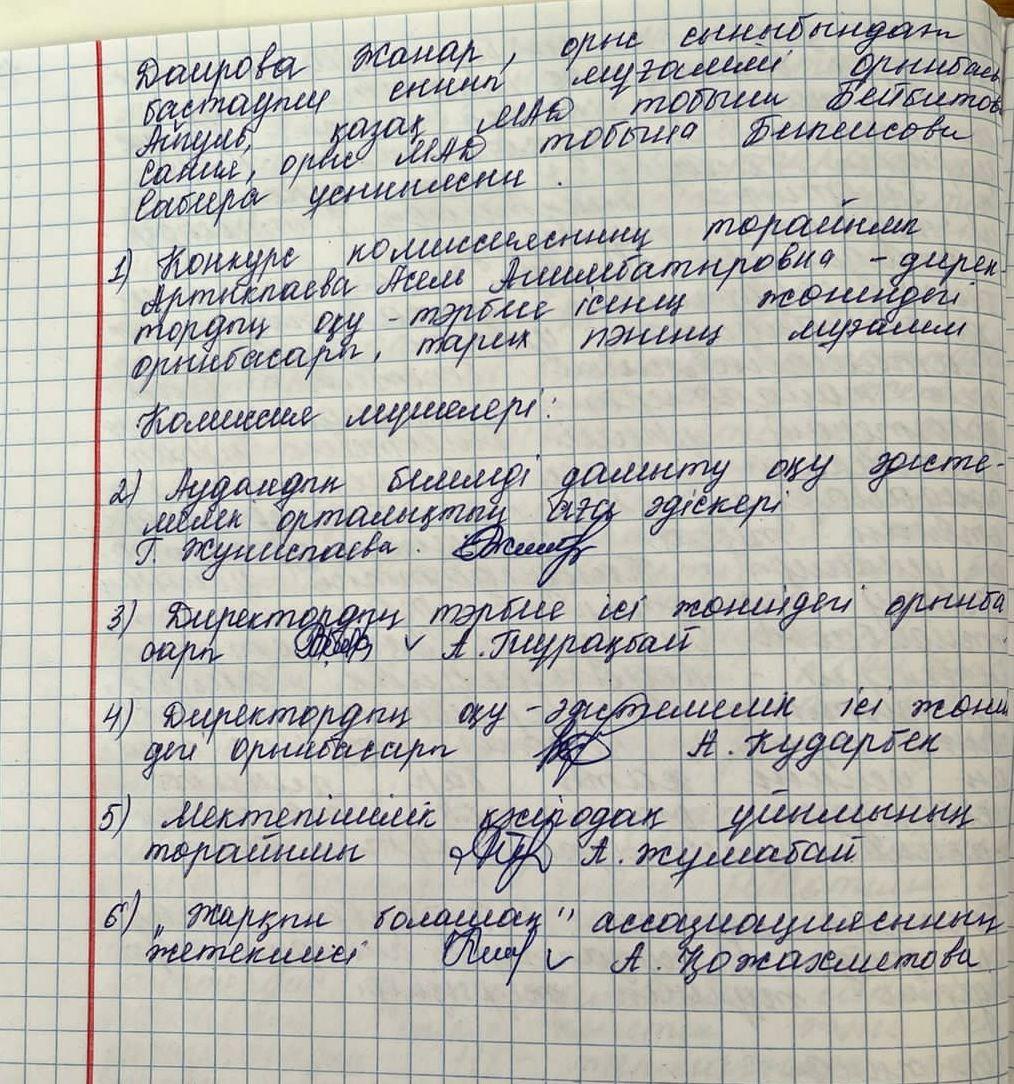 Даирова Жанар, орыс сыныбындағ
бастауыш сынып мұғалімі Орынбаева
Айгуль, қазақ МАД тобына Бейбитова
Сания, орыс МАД тобына Бипеисова
Сабира ұсынылсын.
1) Конкурс комиссиясының төрайымы
Артыкпаева Асем Алимбатыровна - дирек-
тордың оқу - тәрбие ісінің жөніндегі
орынбасары, тарих пәнінің мұғалімі
Комиссия мүшелері:
2) Аудандық білімді дамыту оқу әдісте-
мелік орталықтың аға әдіскері
Г. Жуниспаева.
3) Директордың тәрбие ісі жөніндегі орынба
сары А. Тұрақбай
4) Директордың оқу - әдістемелік ісі жөнін
дегі орынбасары А. Құдарбек
5) Мектепішілік кәсіподақ ұйымының
төрайымы А. Жұмабай
6) "Жарқын болашақ" ассоциациясының
жетекшісі А. Қожахметова